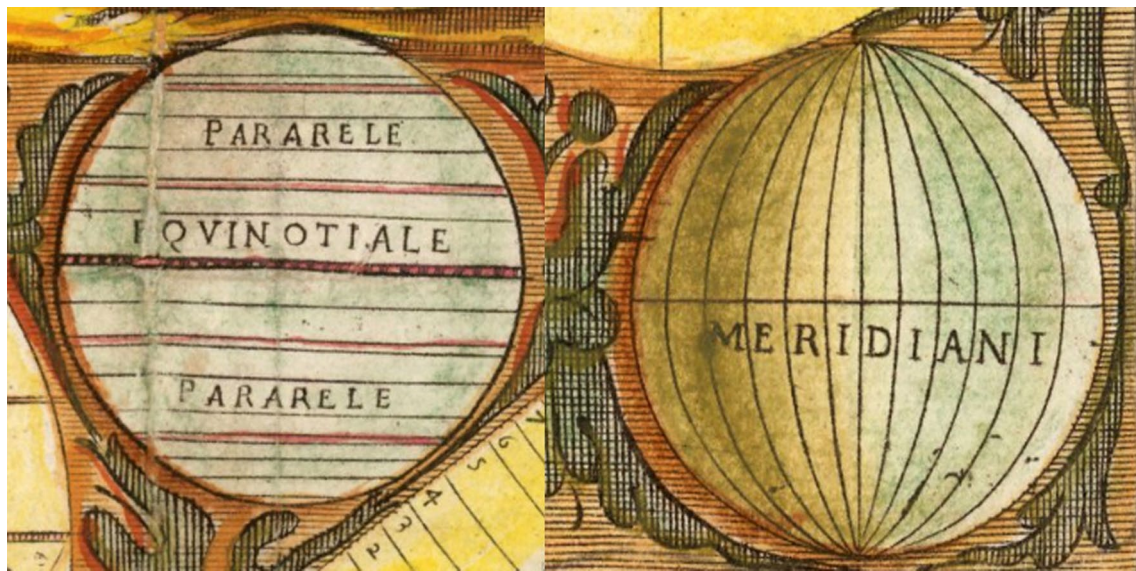 PARARELE
EQVINOTIALE
PARARELE
7
6
5
4
3
2
MERIDIANI